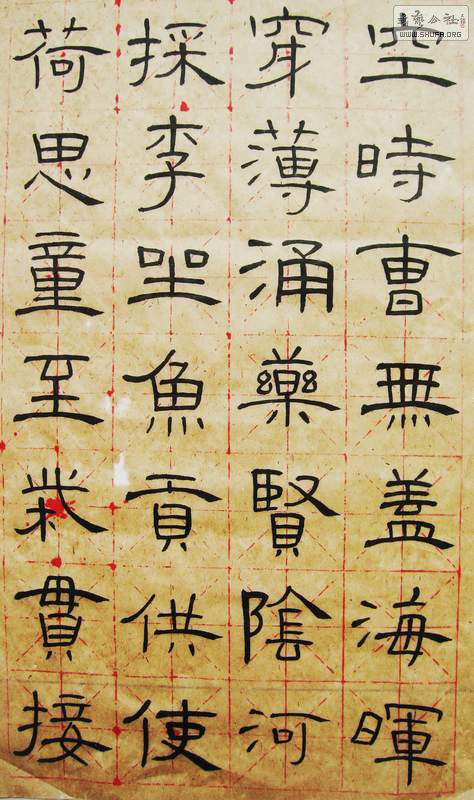 空時曺無盖海暉
穿薄涌藥賢陰河
採李坐魚貢供使
荷思童至貫接
書藝公社
WWW.SHUFA.ORG